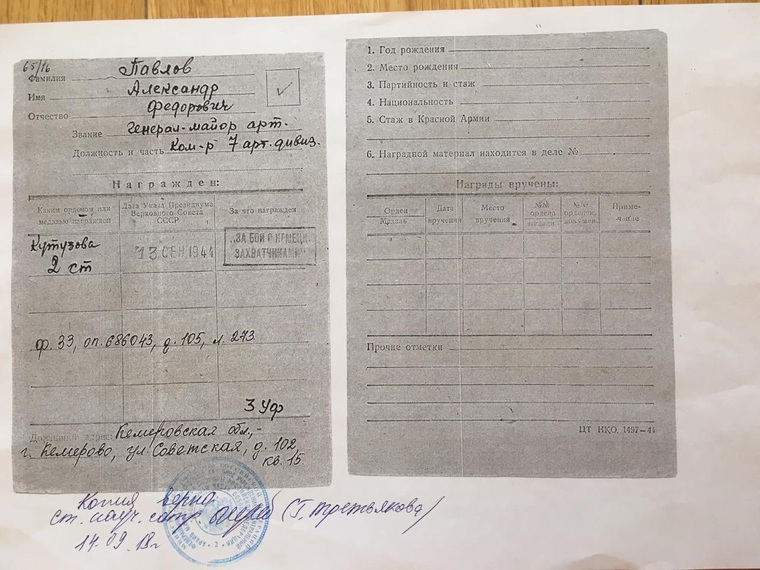 65/16
Фамилия Павлов
Имя Александр
Отчество Федорович
Звание Генерал-майор арт.
Должность и часть Ком-р 7 арт. дивиз.
Награжден:
Каким орденом или медалью награжден
Дата Указа Президиума Верховного Совета СССР
За что награжден
Кутузова
2 ст
13 СЕН 1944
ЗА БОИ С НЕМЕЦК.
ЗАХВАТЧИКАМИ
ф. 33, оп. 686043, д. 105, л. 273
3 Уф
Домашний адрес Кемеровская обл,-
г. Кемерово, ул Советская, д. 102
кв. 15
Копия верна
ст. науч. сотр. (Т. Третьякова)
14.09.19г
1. Год рождения
2. Место рождения
3. Партийность и стаж
4. Национальность
5. Стаж в Красной Армии
6. Наградной материал находится в деле №
Награды вручены:
Орден Медаль
Дата вручения
Место вручения
№№ ордена медали
№№ орденск. докумен.
Приме-чание
Прочие отметки
ЦТ НКО. 1497—44